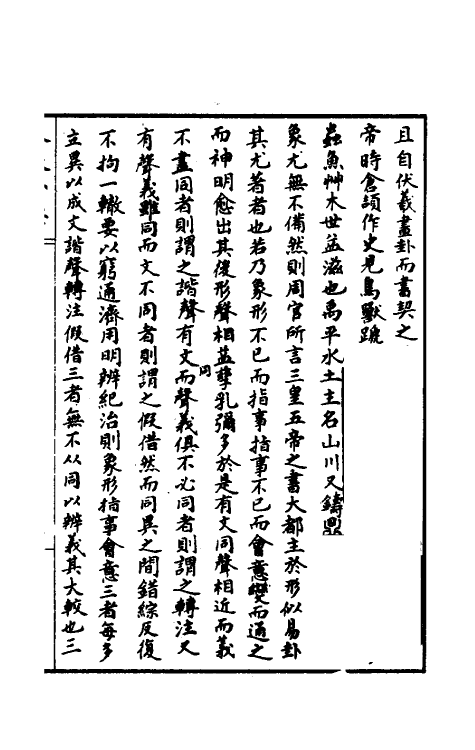 且自伏羲畫卦而書契之
帝時倉頡作史見鳥獸蹏
蟲魚艸木世益滋也禹平水土主名山川又鑄鼎
象尤無不備然則周官所言三皇五帝之書大都主於形似易卦
其尤著者也若乃象形不已而指事指事不已而會意變而通之
而神明愈出其後形聲相益孳乳彌多於是有文同聲相近而義
不盡同者則謂之諧聲有文而聲義俱不必同者則謂之轉注又
同
有聲義雖同而文不同者則謂之假借然而同異之間錯綜反復
不拘一轍要以窮通濟用明辨紀治則象形指事會意三者每多
立異以成文諧聲轉注假借三者無不从同以辨義其大較也三